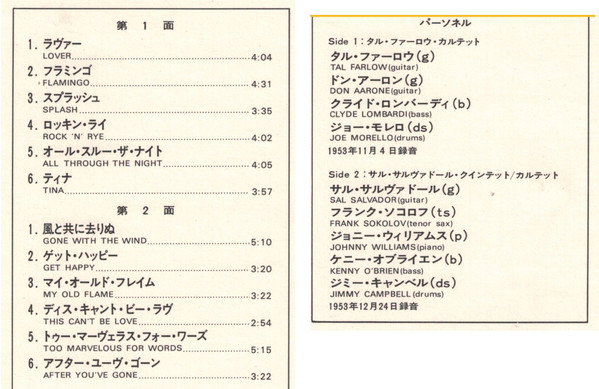 第 1 面
1. ラヴァー
LOVER 4:04
2. フラミンゴ
FLAMINGO 4:31
3. スプラッシュ
SPLASH 3:35
4. ロッキン・ライ
ROCK 'N' RYE 4:02
5. オール・スルー・ザ・ナイト
ALL THROUGH THE NIGHT 4:05
6. ティナ
TINA 3:57
第 2 面
1. 風と共に去りぬ
GONE WITH THE WIND 5:10
2. ゲット・ハッピー
GET HAPPY 3:20
3. マイ・オールド・フレイム
MY OLD FLAME 3:22
4. ディス・キャント・ビー・ラヴ
THIS CAN'T BE LOVE 2:54
5. トゥー・マーヴェラス・フォー・ワーズ
TOO MARVELOUS FOR WORDS 5:15
6. アフター・ユーヴ・ゴーン
AFTER YOU'VE GONE 3:22
パーソネル
Side 1：タル・ファーロウ・カルテット
タル・ファーロウ(g)
TAL FARLOW(guitar)
ドン・アーロン(g)
DON AARONE(guitar)
クライド・ロンバーディ(b)
CLYDE LOMBARDI(bass)
ジョー・モレロ(ds)
JOE MORELLO(drums)
1953年11月4日録音
Side 2：サル・サルヴァドール・クインテット/カルテット
サル・サルヴァドール(g)
SAL SALVADOR(guitar)
フランク・ソコロフ(ts)
FRANK SOKOLOV(tenor sax)
ジョニー・ウィリアムス(p)
JOHNNY WILLIAMS(piano)
ケニー・オブライエン(b)
KENNY O'BRIEN(bass)
ジミー・キャンベル(ds)
JIMMY CAMPBELL(drums)
1953年12月24日録音